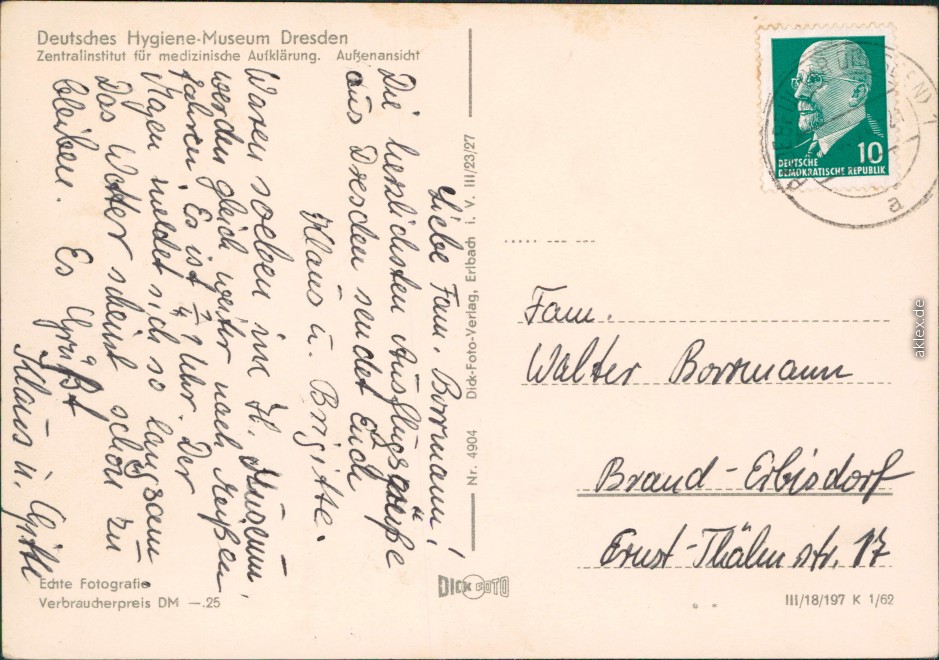 Deutsches Hygiene-Museum Dresden
Zentralinstitut für medizinische Aufklärung. Außenansicht
Liebe Fam. Borrmann!
Die herzlichsten Ausflugsgrüße
aus Dresden sendet Euch
Klaus u. Brigitte.
Waren soeben im H. Museum,
werden gleich weiter nach Meißen
fahren. Es ist 3/4 1 Uhr. Der
Magen meldet sich so langsam
Das Wetter scheint schön zu
bleiben. Es Grüßt
Klaus u. Gitti
Echte Fotografie
Verbraucherpreis DM —.25
Nr. 4904 Dick-Foto-Verlag, Erlbach i. V. III/23/27
DICK FOTO
10
DEUTSCHE
DEMOKRATISCHE REPUBLIK
a
Fam.
Walter Borrmann
Brand-Erbisdorf
Ernst-Thälmstr. 17
III/18/197 K 1/62
aklex.de